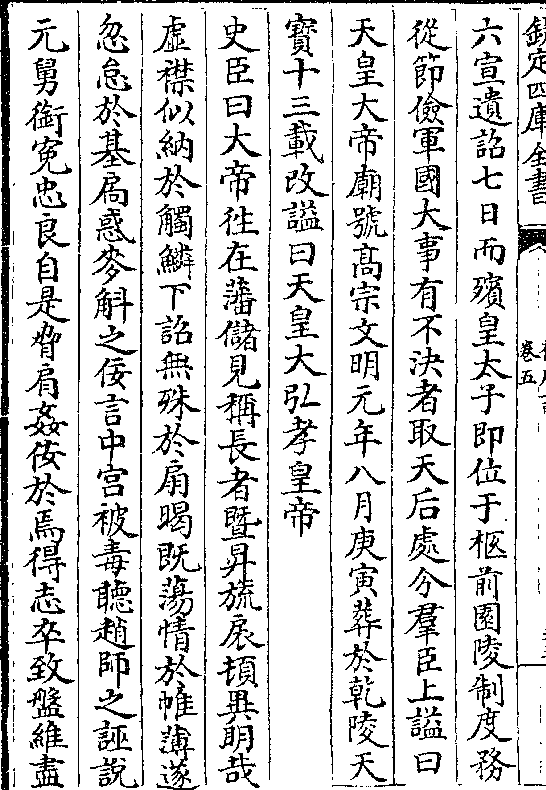 欽定四庫全書
卷五
六宣遺詔七日而殯皇太子即位于柩前園陵制度務
從節儉軍國大事有不決者取天后處分羣臣上諡曰
天皇大帝廟號髙宗文明元年八月庚寅葬於乾陵天
寳十三載改諡曰天皇大弘孝皇帝
史臣曰大帝徃在藩儲見稱長者暨昇旒扆頓異明哉
虛襟似納於觸鱗下詔無殊於扇暍既蕩情於帷薄遂
忽怠於基扃惑麥斛之佞言中宫被毒聽趙師之誣説
元舅銜寃忠良自是脅肩姦佞於焉得志卒致盤維盡